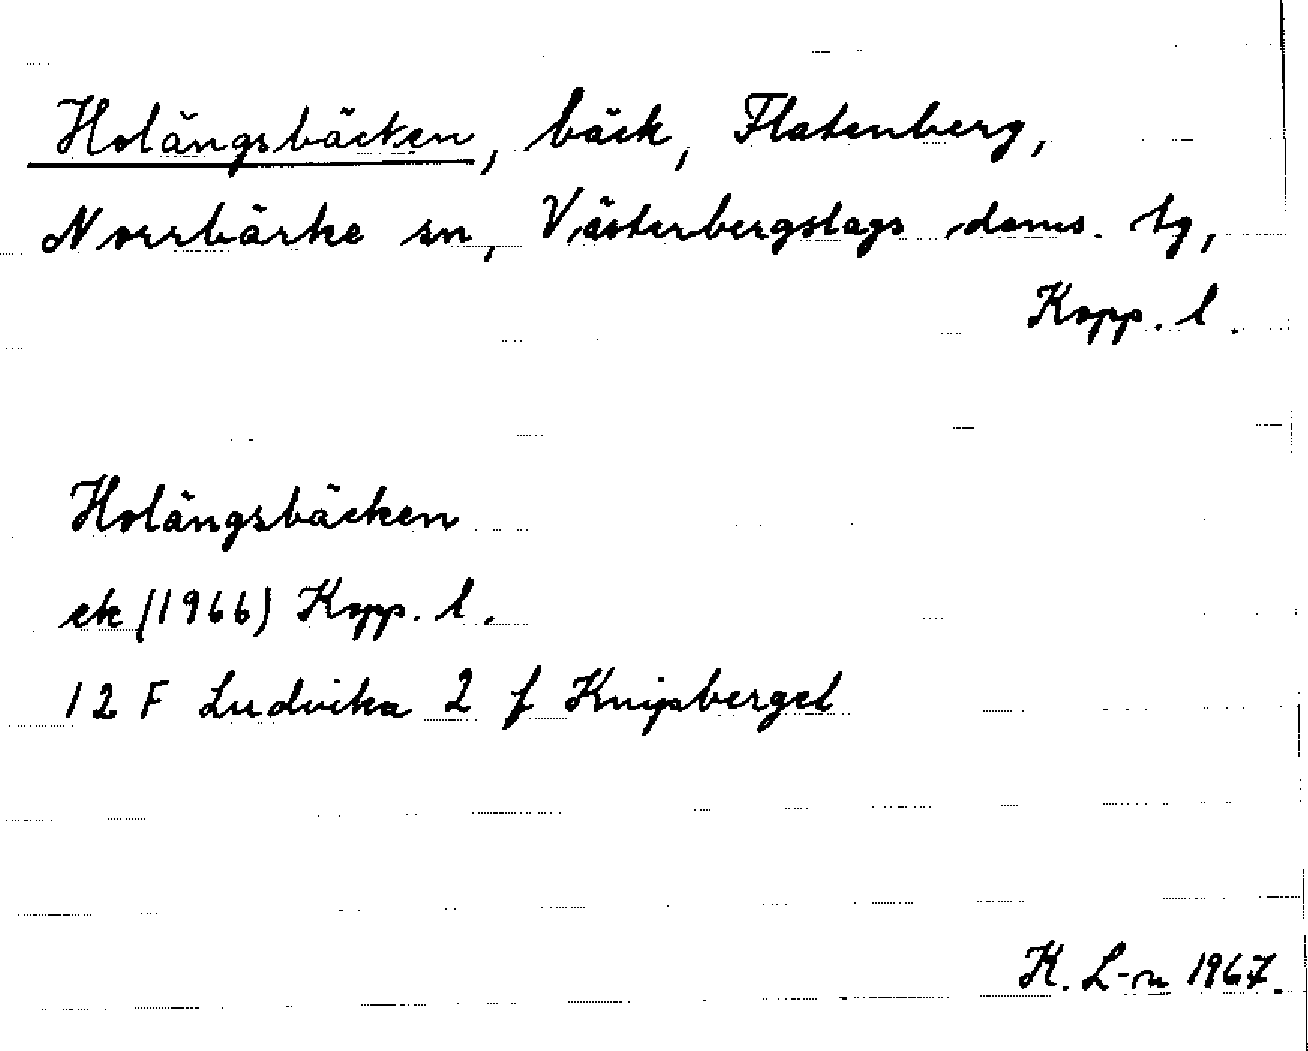 Holängsbäcken, bäck, Flatenberg,
Norrbärke sn, Västerbergslags doms. tg,
Kopp. l.
Holängsbäcken
ek (1966) Kopp. l.
12 F Ludvika 2 f Knipberget
K. L-n 1967.